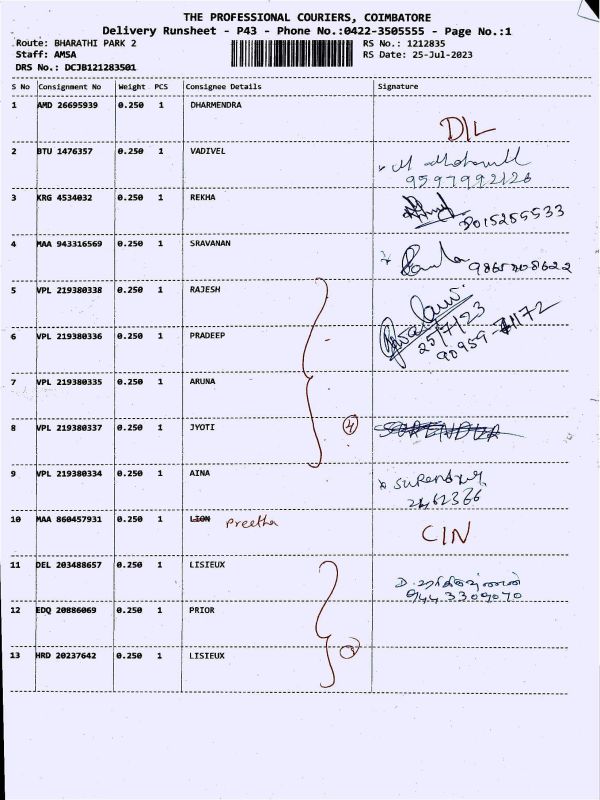 THE PROFESSIONAL COURIERS, COIMBATORE
Delivery Runsheet - P43 - Phone No.:0422-3505555 - Page No.:1
Route: BHARATHI PARK 2 RS No.: 1212835
Staff: AMSA RS Date: 25-Jul-2023
DRS No.: DCJB121283501
S No Consignment No Weight PCS Consignee Details Signature
1 AMD 26695939 0.250 1 DHARMENDRA
D/L
2 BTU 1476357 0.250 1 VADIVEL
9597992126
3 KRG 4534032 0.250 1 REKHA
8015255533
4 MAA 943316569 0.250 1 SRAVANAN
5 VPL 219380338 0.250 1 RAJESH
25/7/23
6 VPL 219380336 0.250 1 PRADEEP
7 VPL 219380335 0.250 1 ARUNA
8 VPL 219380337 0.250 1 JYOTI 4
9 VPL 219380334 0.250 1 AINA
2462366
10 MAA 860457931 0.250 1 LION Preetha CIN
11 DEL 203488657 0.250 1 LISIEUX
9443309070
12 EDQ 20886069 0.250 1 PRIOR
13 HRD 20237642 0.250 1 LISIEUX